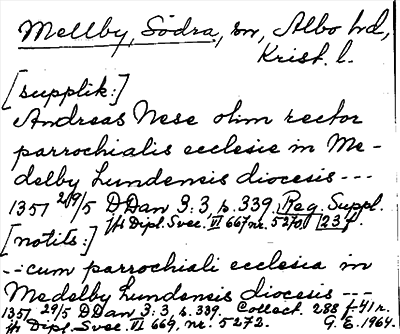 Mellby, Södra, sn, Albo hd,
Krist. l.
[supplik:]
Andreas Nese olim rector
parrochialis ecclesie in Me-
delby Lundensis diocesis ---
1357 29/5 DDan 3:3 s. 339. Reg. Suppl.
jfr Dipl. Svec. VI 667 nr. 5270
[notits:]
--cum parrochiali ecclesia in
Medelby Lundensis diocesis ---
1357 29/5 DDan 3:3 s. 339. Collect. 288 f. 41 r.
jfr Dipl. Svec. VI 669, nr. 5272. G.E. 1964.